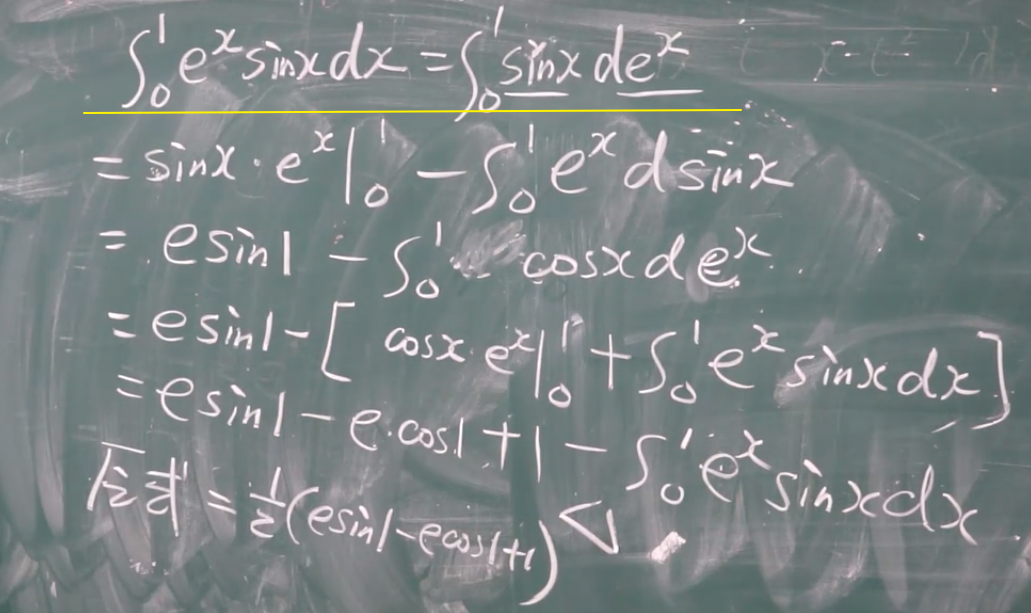 ∫₀¹ eˣ sinx dx = ∫₀¹ sinx deˣ
= sinx · eˣ |₀¹ − ∫₀¹ eˣ d sinx
= e sin1 − ∫₀¹ cosx d eˣ
= e sin1 − [ cosx · eˣ |₀¹ + ∫₀¹ eˣ sinx dx ]
= e sin1 − e·cos1 + 1 − ∫₀¹ eˣ sinx dx
原式 = ½(e sin1 − e cos1 + 1)